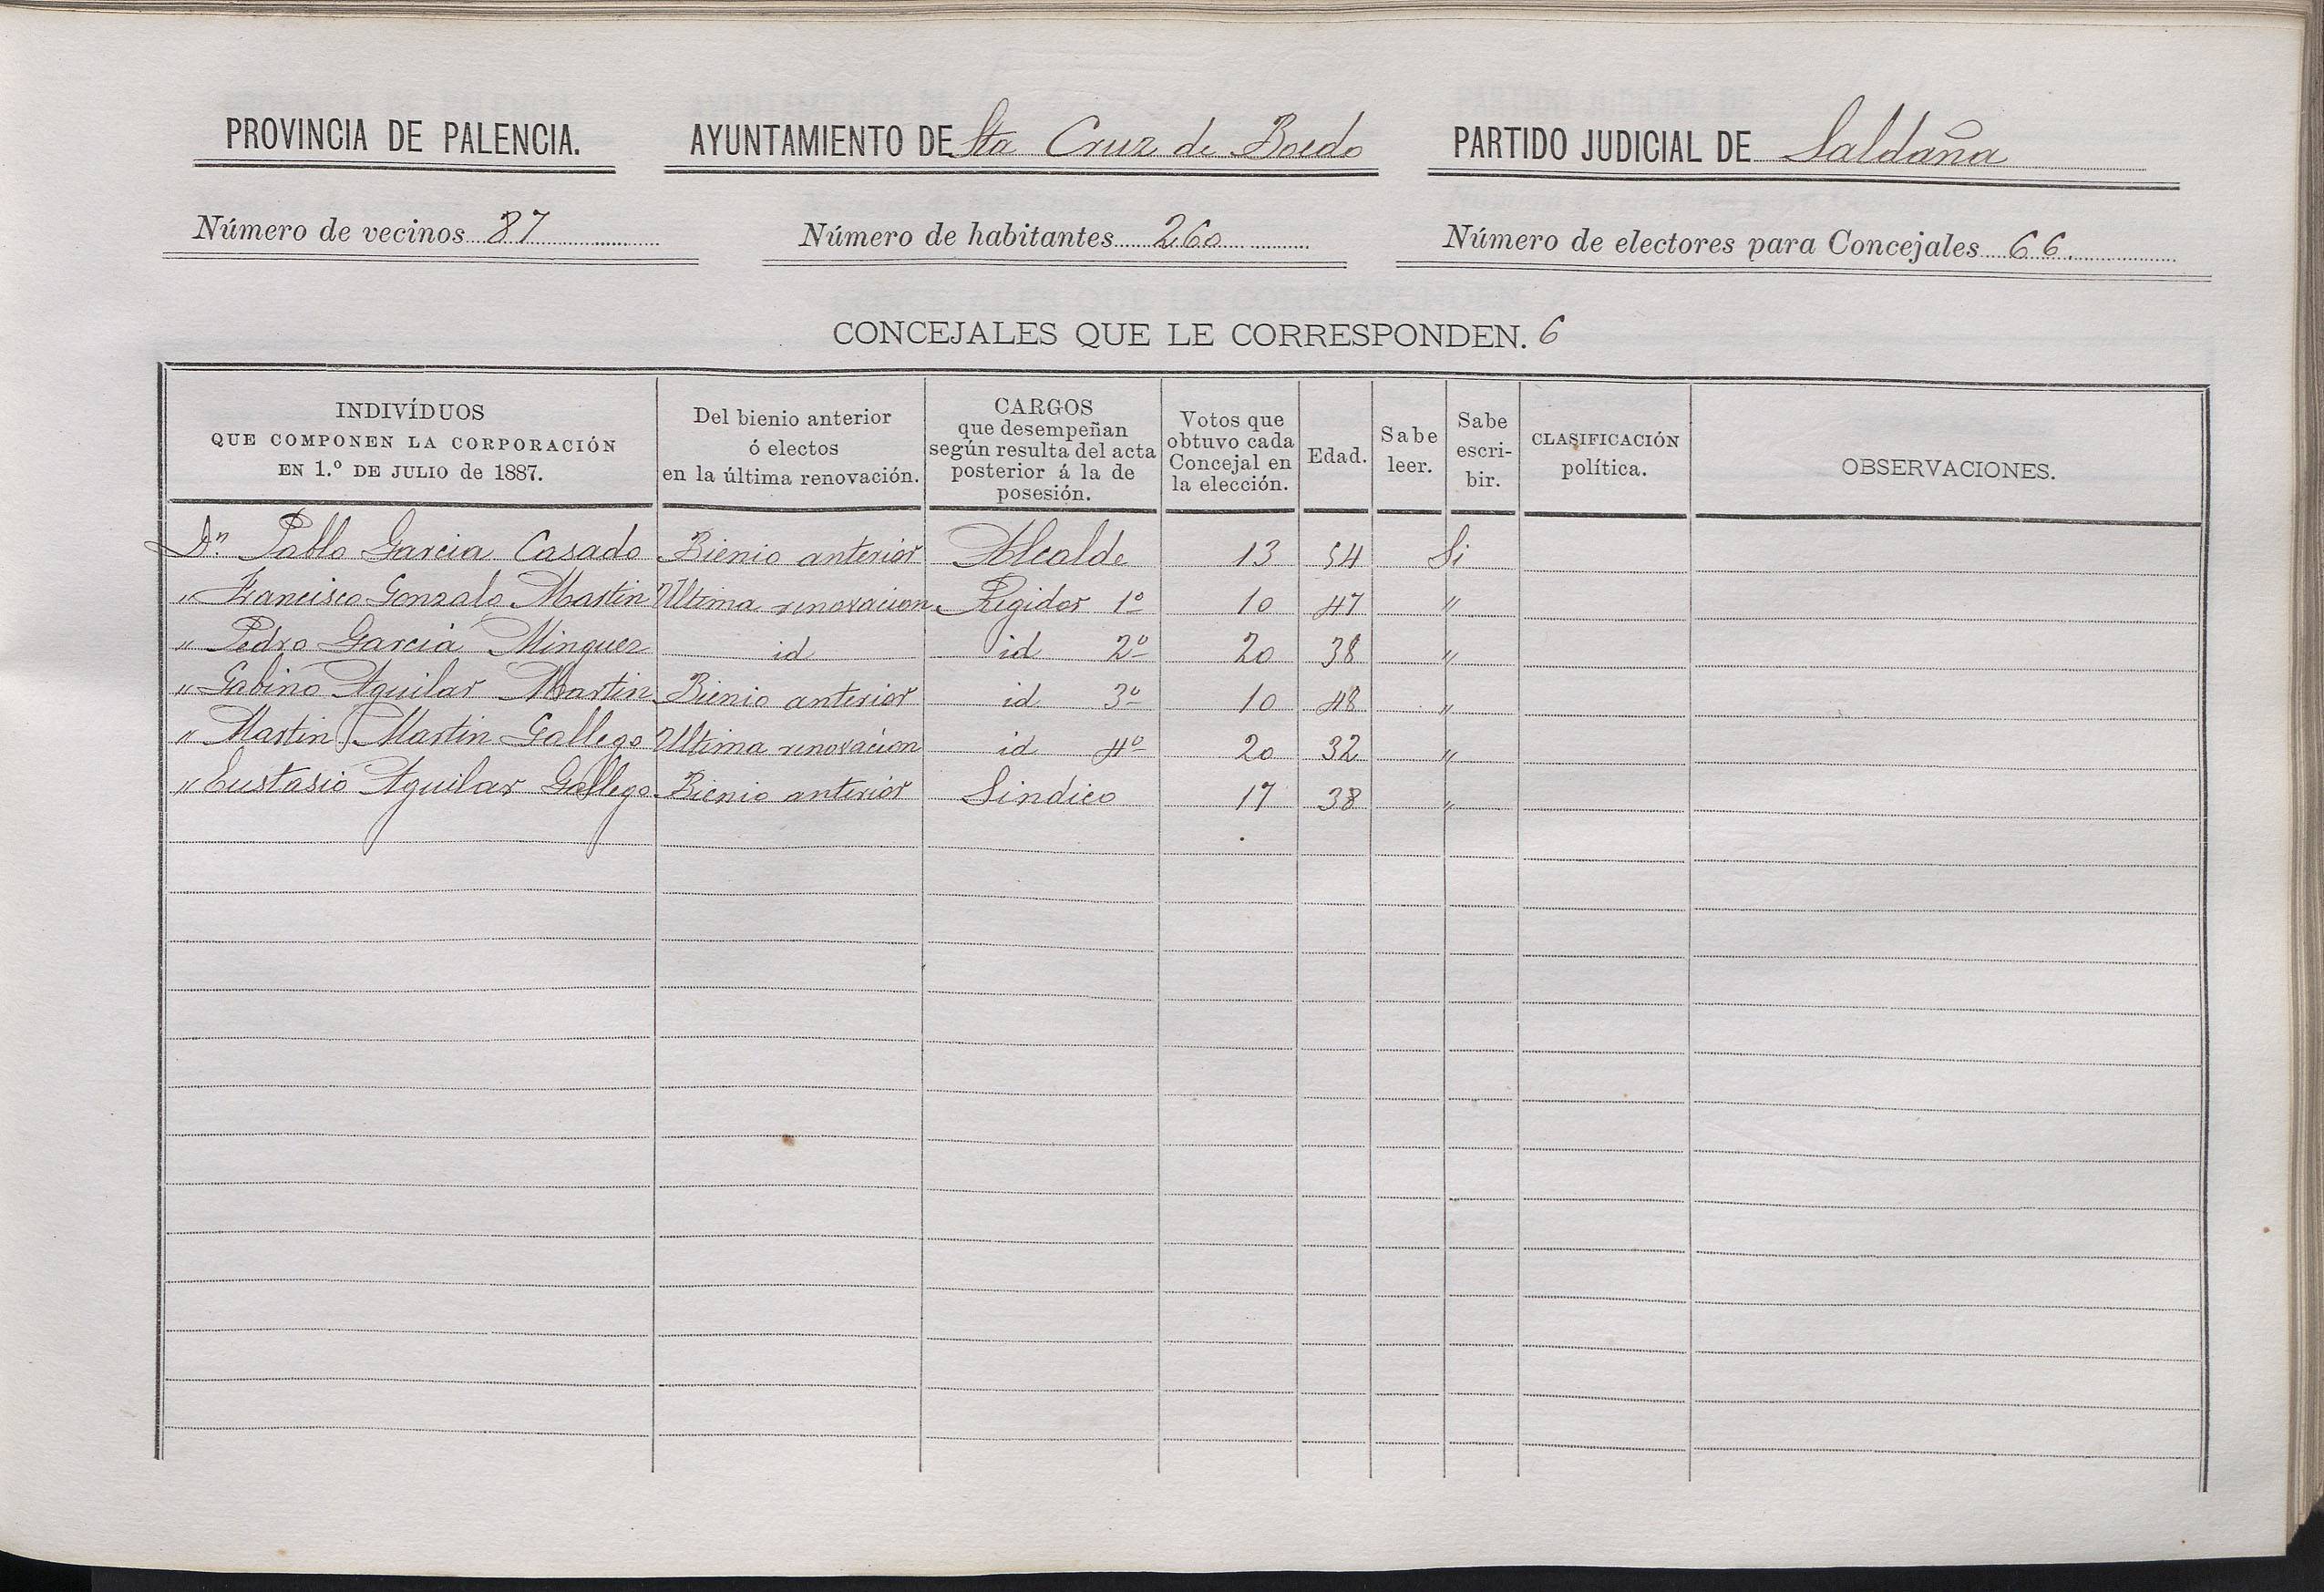 PROVINCIA DE PALENCIA. AYUNTAMIENTO DE Sta Cruz de Boedo PARTIDO JUDICIAL DE Saldaña
Número de vecinos 87 Número de habitantes 260 Número de electores para Concejales 66
CONCEJALES QUE LE CORRESPONDEN. 6
INDIVÍDUOS
QUE COMPONEN LA CORPORACIÓN
EN 1.º DE JULIO de 1887.
Del bienio anterior
ó electos
en la última renovación.
CARGOS
que desempeñan
según resulta del acta
posterior á la de
posesión.
Votos que
obtuvo cada
Concejal en
la elección.
Edad.
Sabe
leer.
Sabe
escri-
bir.
CLASIFICACIÓN
política.
OBSERVACIONES.
Dn Pablo Garcia Casado Bienio anterior Alcalde 13 54 Si
" Francisco Gonzalo Martin Ultima renovacion Regidor 1º 10 47 "
" Pedro Garcia Minguez id id 2º 20 38 "
" Gabino Aguilar Martin Bienio anterior id 3º 10 48 "
" Martin Martin Gallego Ultima renovacion id 4º 20 32 "
" Eustasio Aguilar Gallego Bienio anterior Sindico 17 38 "